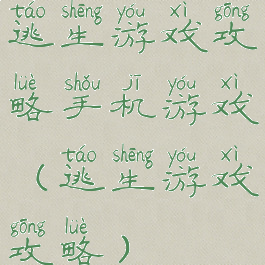 táo shēng yóu xì gōng
逃生游戏攻
lüè shǒu jī yóu xì
略手机游戏
táo shēng yóu xì
（逃生游戏
gōng lüè
攻略）